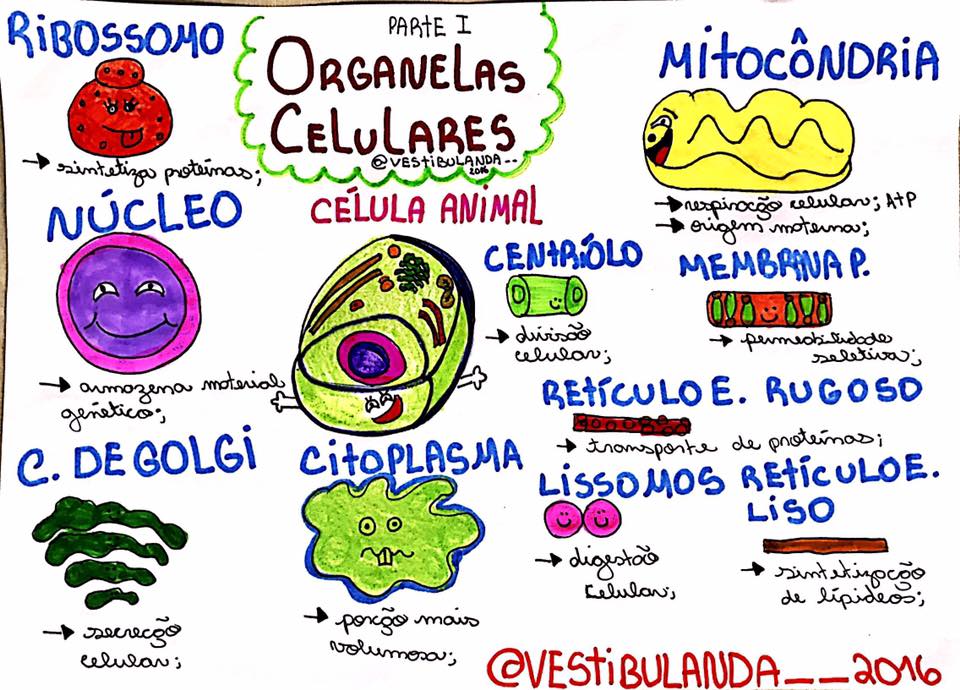 PARTE I
ORGANELAS
CELULARES
@VESTIBULANDA--
2016
RIBOSSOMO
→ sintetiza proteínas;
MITOCÔNDRIA
→ respiração celular; ATP
→ origem materna;
NÚCLEO
→ armazena material
genético;
CÉLULA ANIMAL
CENTRÍOLO
→ divisão
celular;
MEMBRANA P.
→ permeabilidade
seletiva;
RETÍCULO E. RUGOSO
→ transporte de proteínas;
C. DE GOLGI
→ secreção
celular;
CITOPLASMA
→ porção mais
volumosa;
LISSOMOS
→ digestão
celular;
RETÍCULO E.
LISO
→ sintetização
de lípideos;
@VESTIBULANDA__2016